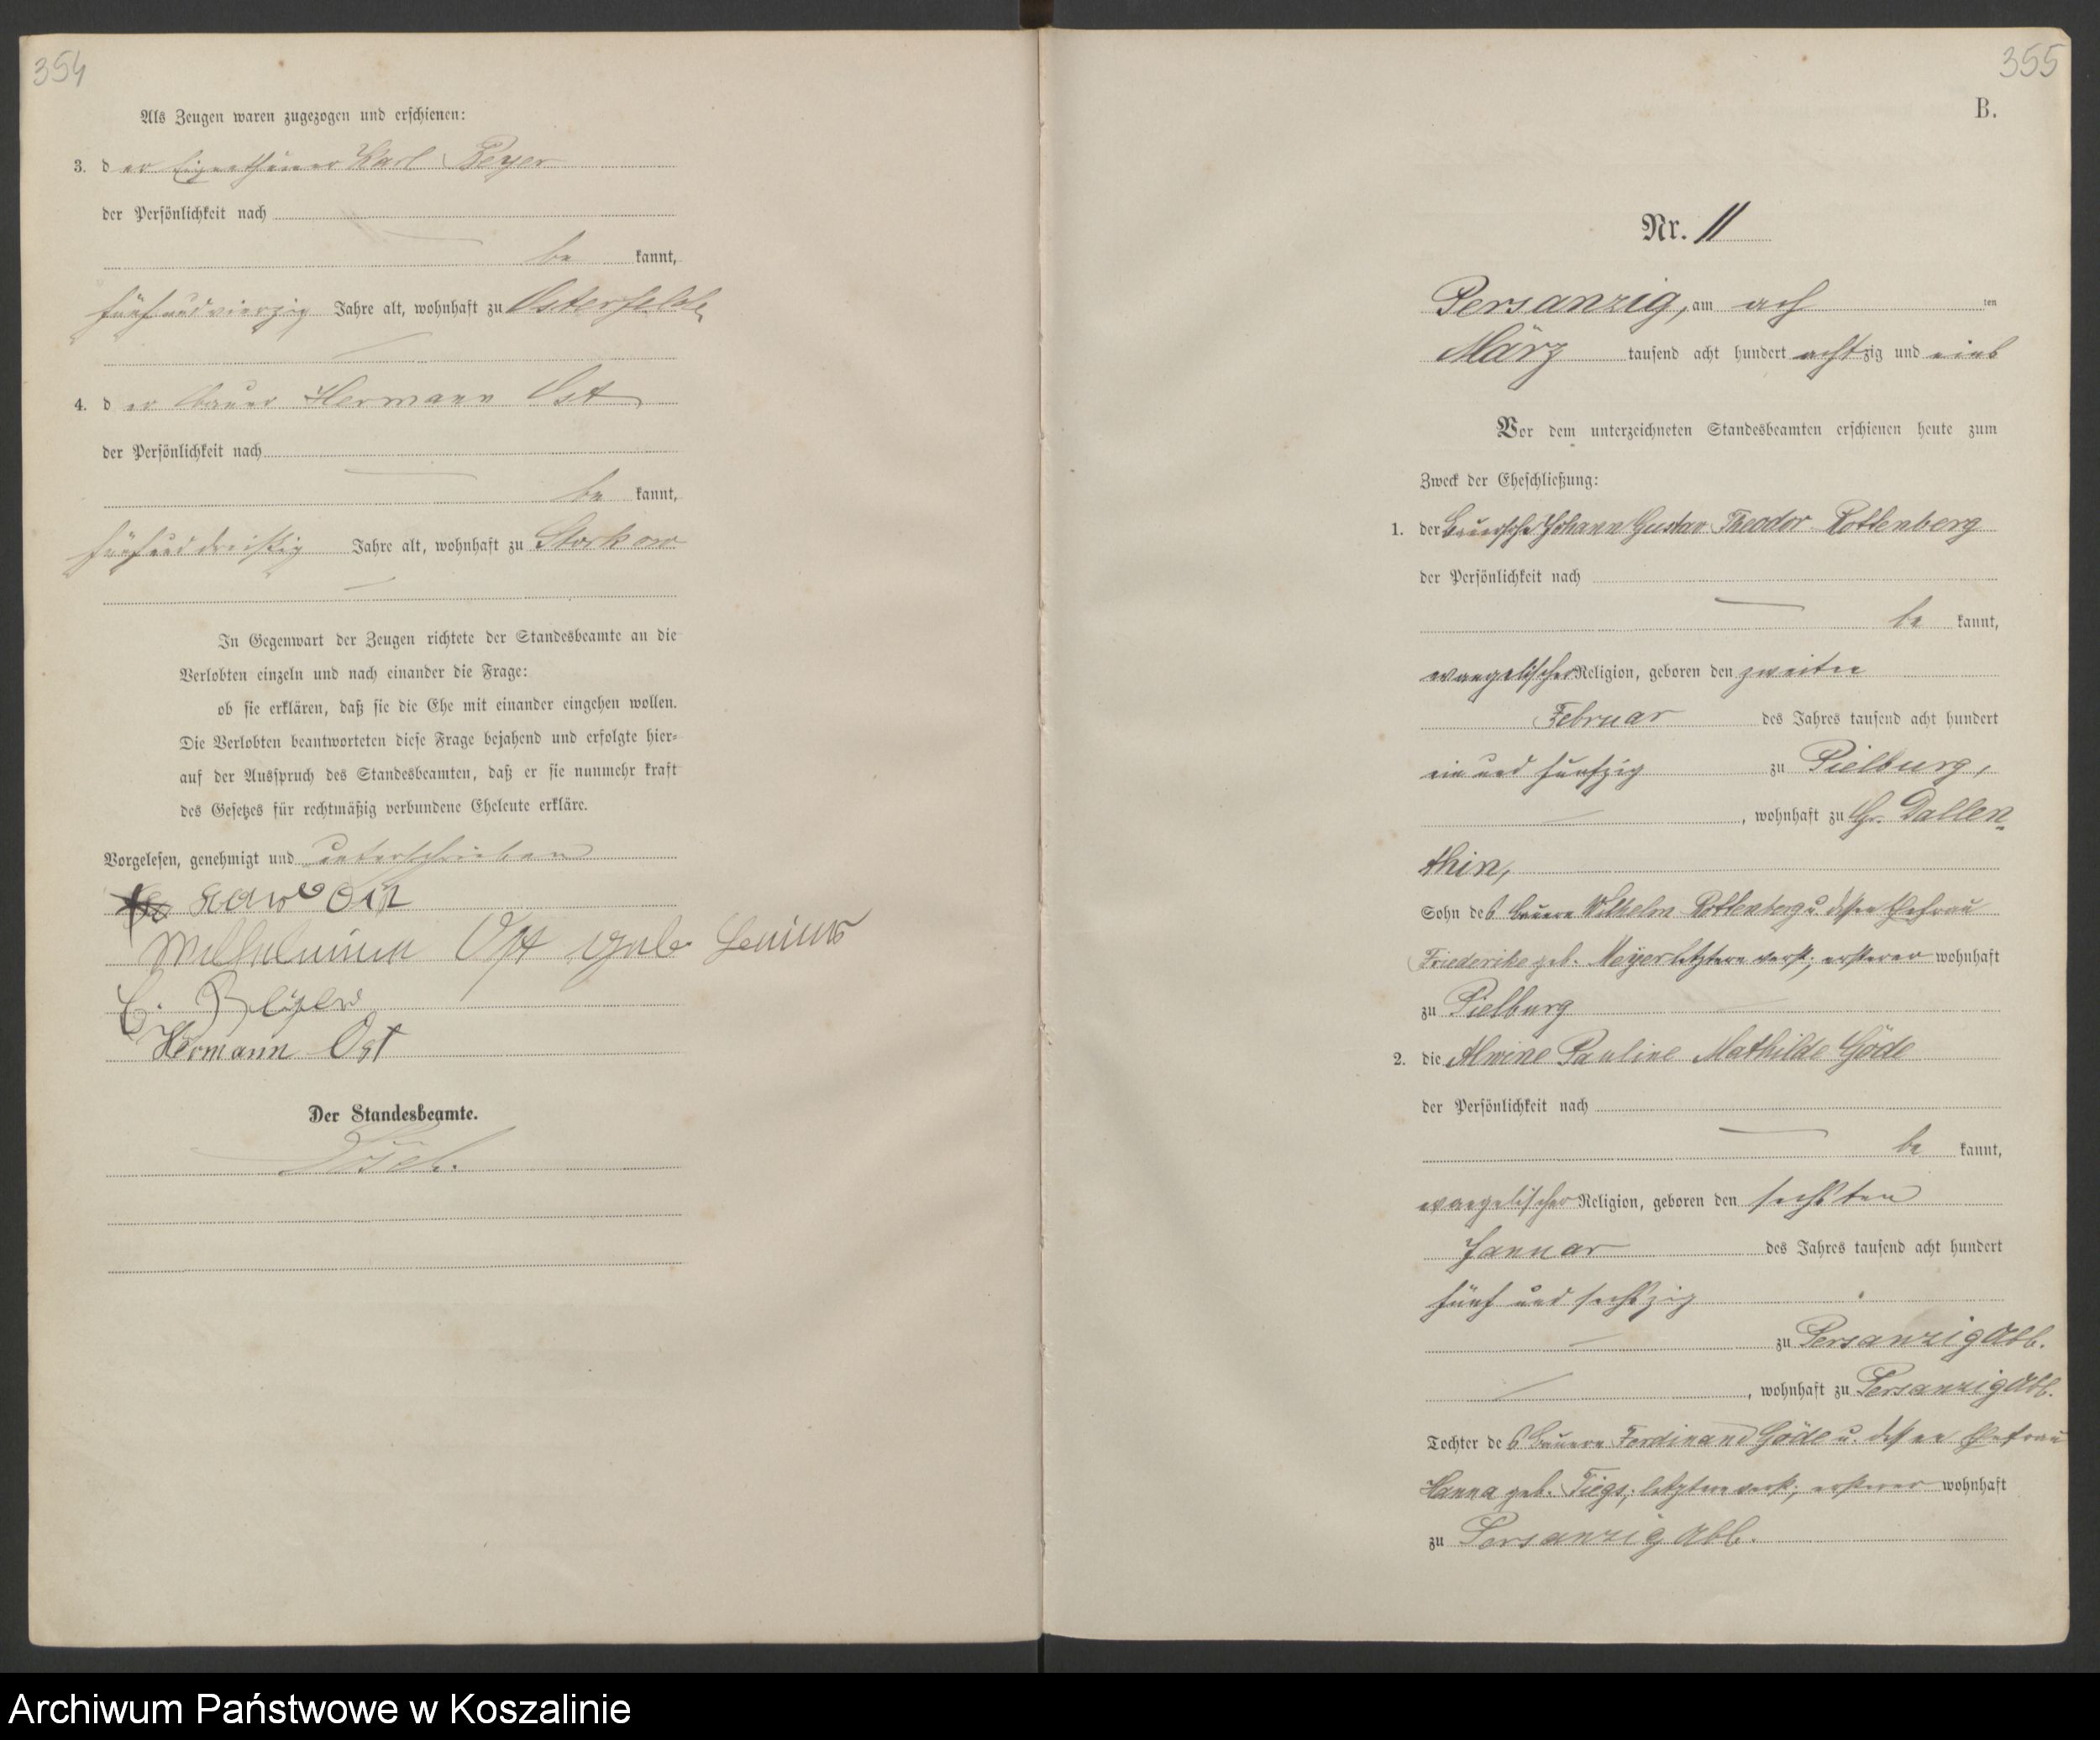 354
Als Zeugen waren zugezogen und erschienen:
3. d er Eigenthümer Karl Beyer
der Persönlichkeit nach
be kannt,
fünf und vierzig Jahre alt, wohnhaft zu Osterfelde,
4. d er Bauer Hermann Ost
der Persönlichkeit nach
be kannt,
fünf und dreißig Jahre alt, wohnhaft zu Storkow
In Gegenwart der Zeugen richtete der Standesbeamte an die
Verlobten einzeln und nach einander die Frage:
ob sie erklären, daß sie die Ehe mit einander eingehen wollen.
Die Verlobten beantworteten diese Frage bejahend und erfolgte hier-
auf der Ausspruch des Standesbeamten, daß er sie nunmehr kraft
des Gesetzes für rechtmäßig verbundene Eheleute erkläre.
Vorgelesen, genehmigt und unterschrieben
Ost
Wilhelmine Ost geb
Hermann Ost
Der Standesbeamte.
355
B.
Nr. 11
Persanzig, am ach ten
März tausend acht hundert achtzig und eins
Vor dem unterzeichneten Standesbeamten erschienen heute zum
Zweck der Eheschließung:
1. der Johann Gustav Theodor Rottenberg
der Persönlichkeit nach
be kannt,
evangelischer Religion, geboren den zweiten
Februar des Jahres tausend acht hundert
ein und funfzig zu Pielburg,
, wohnhaft zu Gr. Dallen-
thin,
Sohn des Bauern Wilhelm Rottenberg u. dessen Ehefrau
Friederike geb. Meyer letztere verst., ersterer wohnhaft
zu Pielburg
2. die Alwine Pauline Mathilde Göde
der Persönlichkeit nach
be kannt,
evangelischer Religion, geboren den sechsten
Januar des Jahres tausend acht hundert
fünf und sechszig
zu Persanzig Abb.
, wohnhaft zu Persanzig Abb.
Tochter des Bauern Ferdinand Göde u. dessen Ehefrau
Hanna geb. Tiegs, letztere verst., ersterer wohnhaft
zu Persanzig Abb.
Archiwum Państwowe w Koszalinie